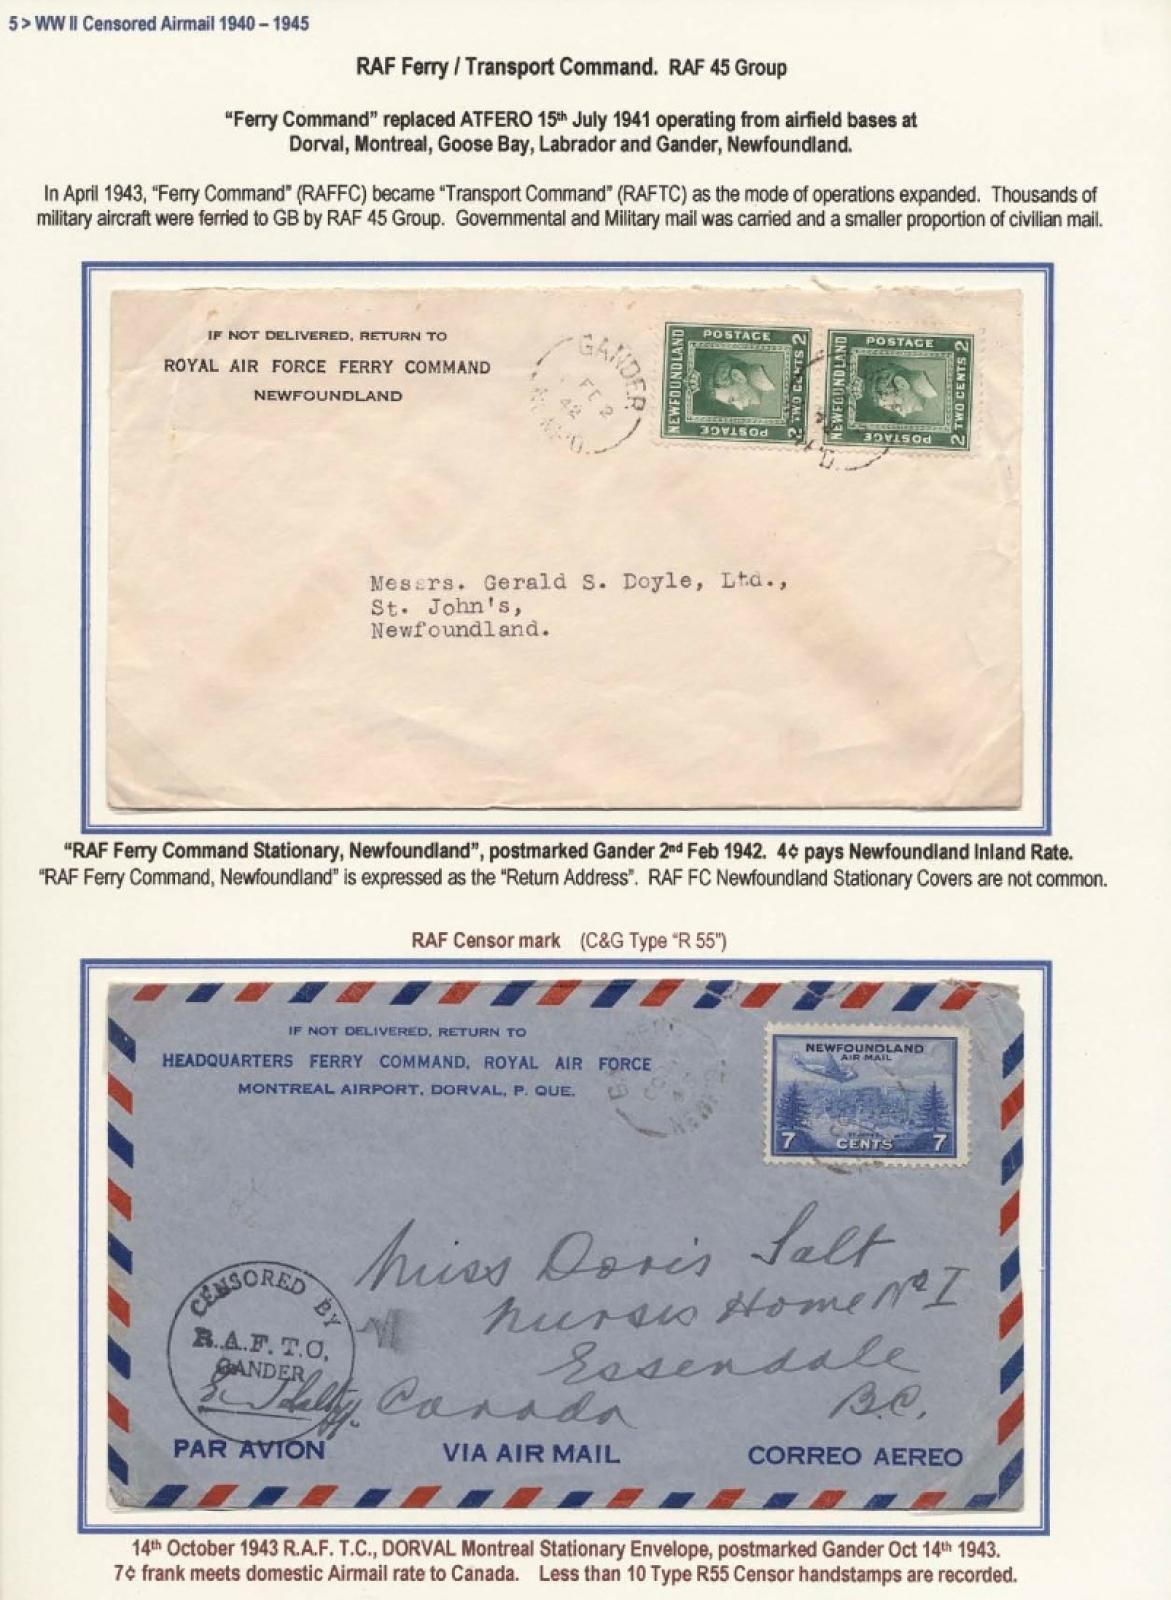 5 > WW II Censored Airmail 1940 – 1945
RAF Ferry / Transport Command. RAF 45 Group
“Ferry Command” replaced ATFERO 15th July 1941 operating from airfield bases at
Dorval, Montreal, Goose Bay, Labrador and Gander, Newfoundland.
In April 1943, “Ferry Command” (RAFFC) became “Transport Command” (RAFTC) as the mode of operations expanded. Thousands of
military aircraft were ferried to GB by RAF 45 Group. Governmental and Military mail was carried and a smaller proportion of civilian mail.
IF NOT DELIVERED, RETURN TO
ROYAL AIR FORCE FERRY COMMAND
NEWFOUNDLAND
GANDER
FE 2
42
NEWFOUNDLAND
POSTAGE
TWO CENTS 2
POSTAGE
2
NEWFOUNDLAND
POSTAGE
TWO CENTS 2
POSTAGE
2
Messrs. Gerald S. Doyle, Ltd.,
St. John's,
Newfoundland.
“RAF Ferry Command Stationary, Newfoundland”, postmarked Gander 2nd Feb 1942. 4¢ pays Newfoundland Inland Rate.
“RAF Ferry Command, Newfoundland” is expressed as the “Return Address”. RAF FC Newfoundland Stationary Covers are not common.
RAF Censor mark (C&G Type “R 55”)
IF NOT DELIVERED, RETURN TO
HEADQUARTERS FERRY COMMAND, ROYAL AIR FORCE
MONTREAL AIRPORT, DORVAL, P. QUE.
NEWFOUNDLAND
AIR MAIL
7 CENTS 7
Miss Doris Salt
Nurses Home No I
Essendale
Canada B.C.
CENSORED BY
R.A.F.T.C.
GANDER
PAR AVION VIA AIR MAIL CORREO AEREO
14th October 1943 R.A.F. T.C., DORVAL Montreal Stationary Envelope, postmarked Gander Oct 14th 1943.
7¢ frank meets domestic Airmail rate to Canada. Less than 10 Type R55 Censor handstamps are recorded.